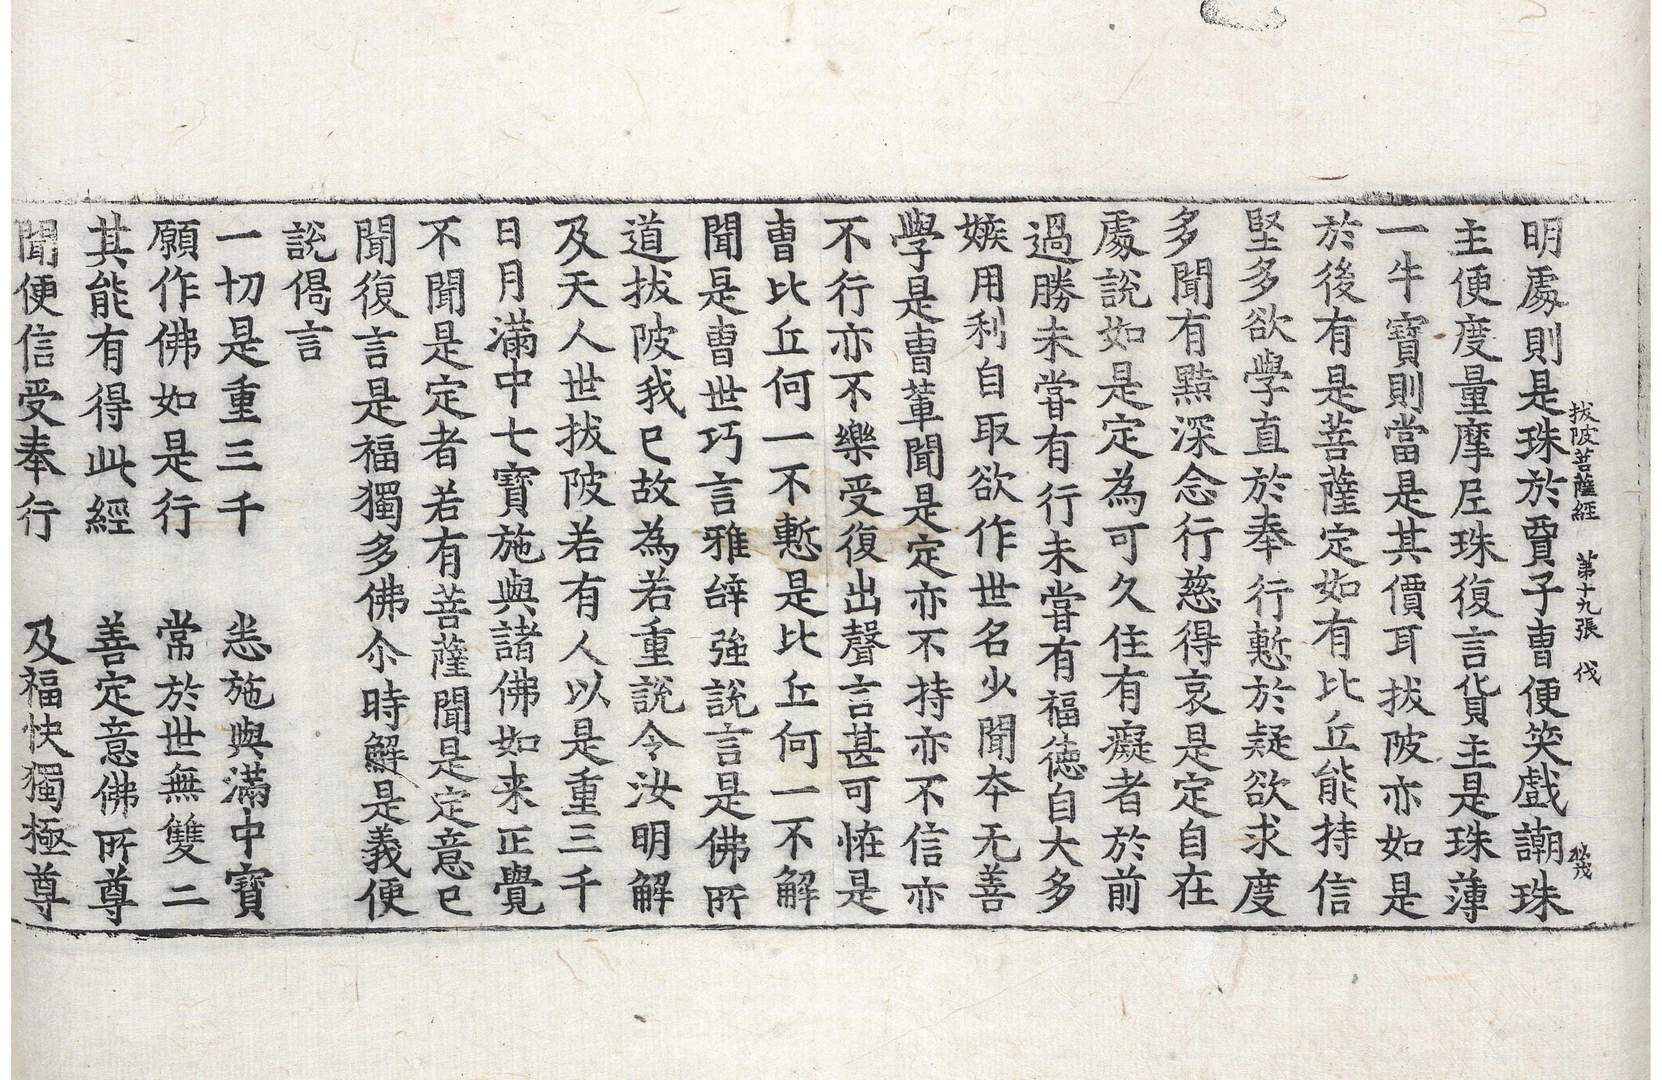 拔陂菩薩經 第十九張 伐
明處則是珠於賈子曺便笑戲謿珠
主便度量摩尼珠復言貨主是珠薄
一牛寶則當是其價耳拔陂亦如是
於後有是菩薩定如有比丘能持信
堅多欲學直於奉行慙於疑欲求度
多聞有黠深念行慈得哀是定自在
處說如是定為可久住有癡者於前
過勝未甞有行未甞有福德自大多
嫉用利自取欲作世名少聞夲无善
學是曺軰聞是定亦不持亦不信亦
不行亦不樂受復出聲言甚可恠是
曺比丘何一不慙是比丘何一不解
聞是曺世巧言雅辝強說言是佛所
道拔陂我已故為若重說令汝明解
及天人世拔陂若有人以是重三千
日月滿中七寶施與諸佛如来正覺
不聞是定者若有菩薩聞是定意已
聞復言是福獨多佛尒時解是義便
說偈言
一切是重三千 恙施與滿中寶
願作佛如是行 常於世無雙二
其能有得此經 善定意佛所尊
聞便信受奉行 及福快獨極尊